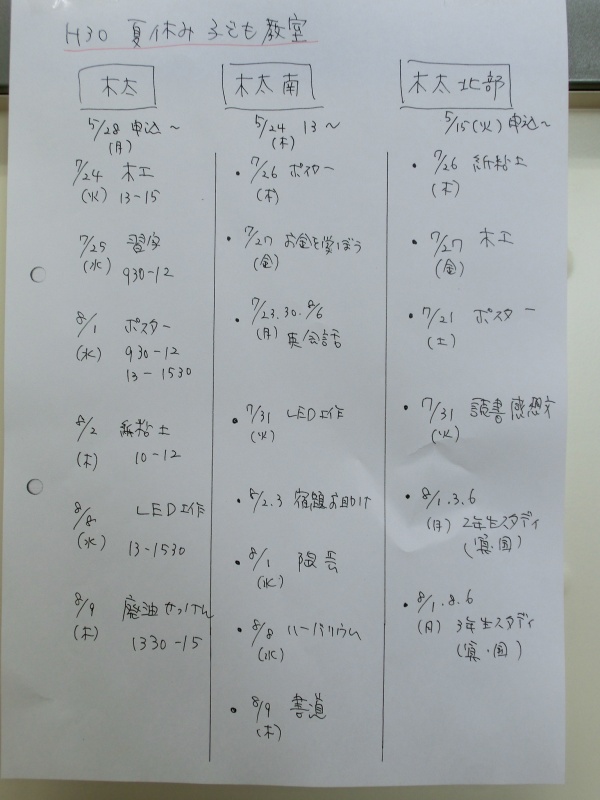 H30 夏休み 子ども教室
木太
5/28 申込～
(月)
7/24 木工
(火) 13-15
7/25 習字
(水) 930-12
8/1 ポスター
(水) 930-12
13-1530
8/2 紙粘土
(木) 10-12
8/8 LED工作
(水) 13-1530
8/9 廃油せっけん
(木) 1330-15
木太南
5/24 13～
(木)
・7/26 ポスター
(木)
・7/27 お金を学ぼう
(金)
・7/23.30.8/6
(月) 英会話
・7/31 LED工作
(火)
・8/2.3 宿題お助け
・8/1 陶芸
(水)
・8/8 ハーバリウム
(水)
・8/9 書道
(木)
木太北部
5/15(火)申込～
・7/26 紙粘土
(木)
・7/27 木工
(金)
・7/21 ポスター
(土)
・7/31 読書感想文
(火)
・8/1.3.6
(月) 2年生スタディ
(算・国)
・8/1.8.6
(月) 3年生スタディ
(算・国)